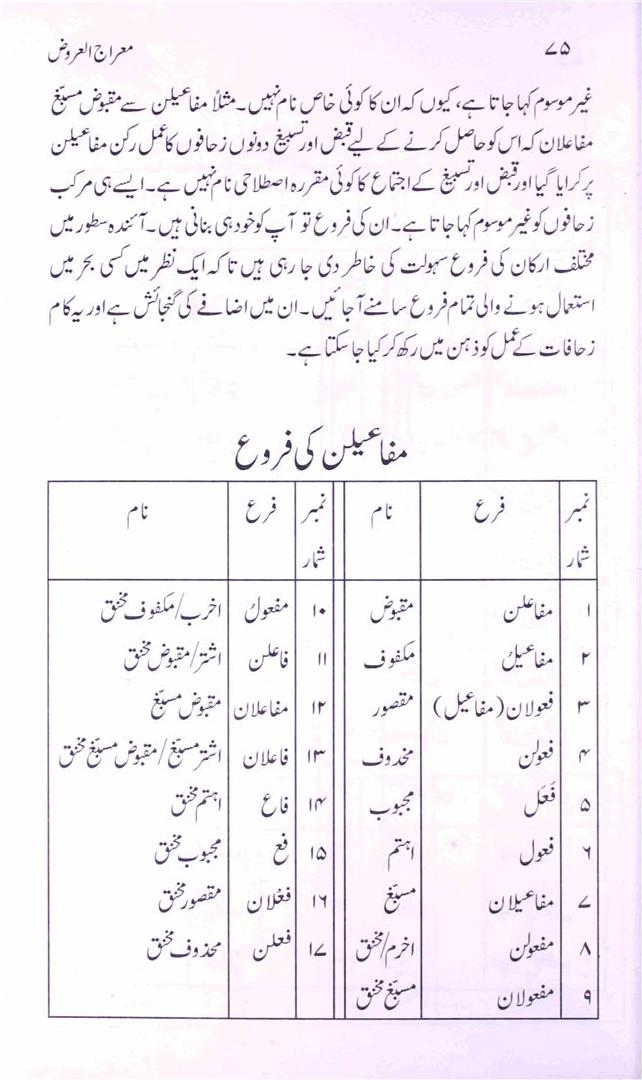 ۷۵ معراج العروض
غیر موسوم کہا جاتا ہے، کیوں کہ ان کا کوئی خاص نام نہیں۔ مثلاً مفاعیلن سے مقبوض مسبّغ
مفاعلان کہ اس کو حاصل کرنے کے لیے قبض اور تسبیغ دونوں زحافوں کا عمل رکن مفاعیلن
پر کرایا گیا اور قبض اور تسبیغ کے اجتماع کا کوئی مقررہ اصطلاحی نام نہیں ہے۔ ایسے ہی مرکب
زحافوں کو غیر موسوم کہا جاتا ہے۔ ان کی فروع تو آپ کو خود ہی بنانی ہیں۔ آئندہ سطور میں
مختلف ارکان کی فروع سہولت کی خاطر دی جا رہی ہیں تا کہ ایک نظر میں کسی بحر میں
استعمال ہونے والی تمام فروع سامنے آ جائیں۔ ان میں اضافے کی گنجائش ہے اور یہ کام
زحافات کے عمل کو ذہن میں رکھ کر کیا جا سکتا ہے۔
مفاعیلن کی فروع
نمبر شمار فرع نام نمبر شمار فرع نام
۱ مفاعلن مقبوض ۱۰ مفعولُ اخرب/مکفوف مخنق
۲ مفاعیلُ مکفوف ۱۱ فاعلن اشتر/مقبوض مخنق
۳ فعولان (مفاعیل) مقصور ۱۲ مفاعلان مقبوض مسبّغ
۴ فعولن مخدوف ۱۳ فاعلان اشتر مسبّغ/مقبوض مسبّغ مخنق
۵ فَعَل مجبوب ۱۴ فاع اہتم مخنق
۶ فعول اہتم ۱۵ فع مجبوب مخنق
۷ مفاعیلان مسبّغ ۱۶ فعْلان مقصور مخنق
۸ مفعولن اخرم/مخنق ۱۷ فعلن محذوف مخنق
۹ مفعولان مسبّغ مخنق